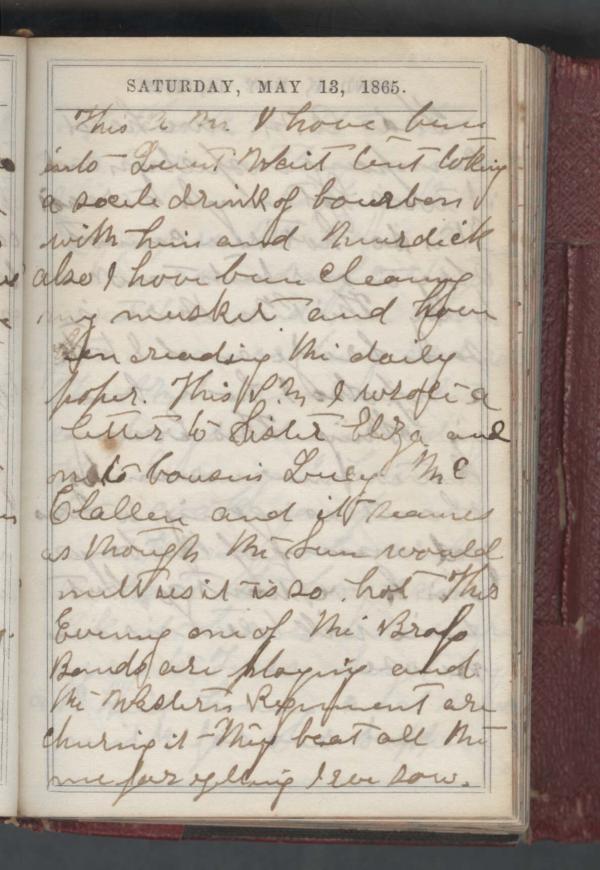 SATURDAY, MAY 13, 1865.
This A M. I have been
into Lieut Wait tent taking
a socile drink of bourbon
with him and Murdick
also I have been cleaning
my musket and have
been areading the daily
paper. This P. M. I wrote a
letter to Sister Eliza and
one to Cousin Lucy Mc
Clallen and it seames
as though the Sun would
melt us it is so hot This
Evening one of the Brass
Bands are playing and
the Western Regement are
churing it - They beat all the
men for yelling I eve saw.